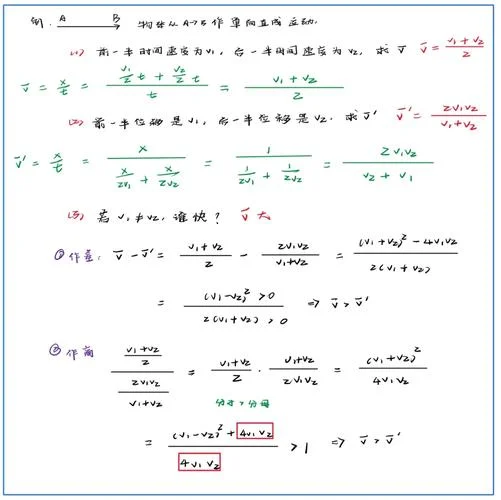 例. A B 物体从A→B作单向直线运动.
(1) 前一半时间速度为v₁, 后一半时间速度为v₂, 求v̄ v̄ = (v₁+v₂)/2
v̄ = x/t = (v₁/2 t + v₂/2 t)/t = (v₁+v₂)/2
(2) 前一半位移是v₁, 后一半位移是v₂. 求v̄' v̄' = 2v₁v₂/(v₁+v₂)
v̄' = x/t = x/(x/2v₁ + x/2v₂) = 1/(1/2v₁ + 1/2v₂) = 2v₁v₂/(v₂+v₁)
(3) 若 v₁≠v₂, 谁快? v̄大
① 作差: v̄ - v̄' = (v₁+v₂)/2 - 2v₁v₂/(v₁+v₂) = ((v₁+v₂)²-4v₁v₂)/2(v₁+v₂)
= (v₁-v₂)²>0/2(v₁+v₂)>0 ⇒ v̄>v̄'
② 作商 ((v₁+v₂)/2)/(2v₁v₂/(v₁+v₂)) = (v₁+v₂)/2 · (v₁+v₂)/2v₁v₂ = (v₁+v₂)²/4v₁v₂
分子>分母
= ((v₁-v₂)²+4v₁v₂)/4v₁v₂ >1 ⇒ v̄>v̄'